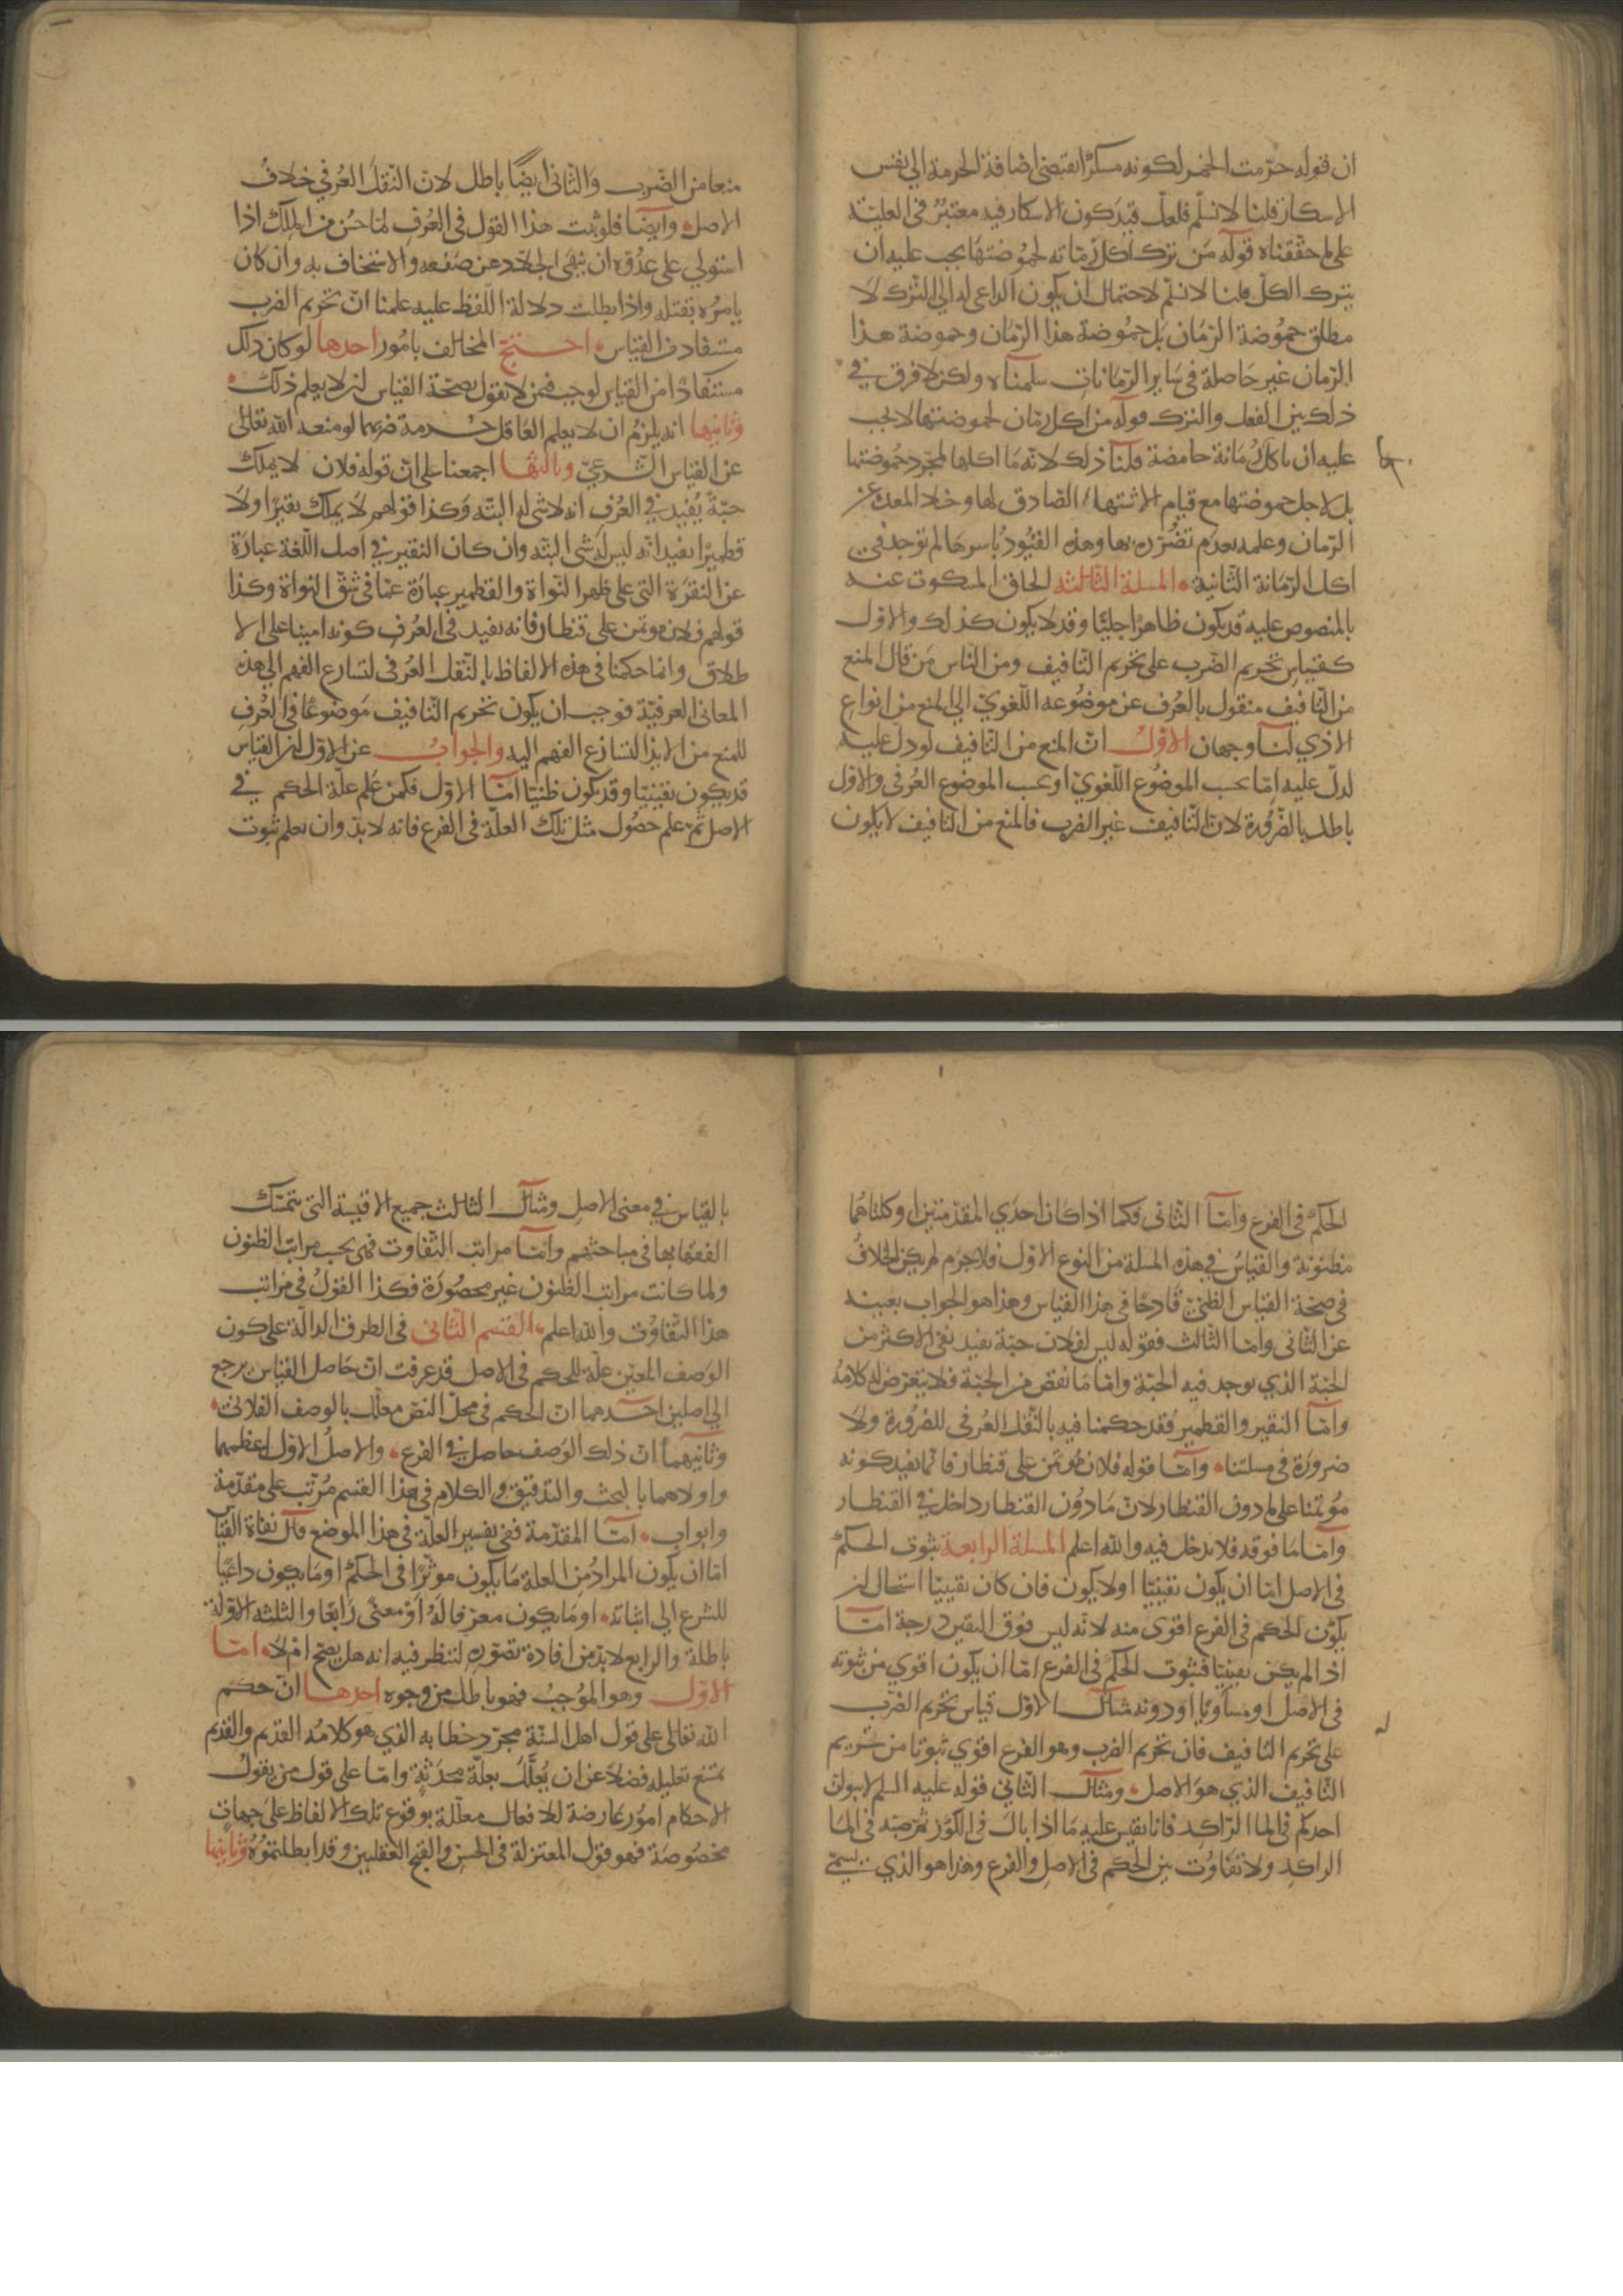 ان قوله حرّمت الخمر لكونه مسكرًا يقتضى اضافة الحرمة الى نفس
الاسكار قلنا لا نسلّم فلعلّ قيد كون الاسكار فيه معتبرٌ فى العليّة
على ما حقّقناه قوله مَن ترك اكل رمّانه لحُموضتها يجب عليه ان
يترك الكلّ قلنا لا نسلّم لاحتمال ان يكون الداعى له الى الترك لا
مطلق حمُوضة الرّمان بَل حمُوضة هذا الرّمان وحموضة هذا
الرّمان غير حَاصلة فى سَاير الرّمّانات سلمناه ولكن لا فرق فى
ذلك بين الفعل والترك قوله من اكل رمّان لحموضتها لا يجب
عليه ان ياكل رُمّانة حامضة قلنا ذلك لانّه مَا اكلها لمجرّد حمُوضتها
بل لاجل حموضتها مع قيام الاشتهاء الصّادق لها وخلا المعدة عن
الرّمان وعلمه بعدم تضُرّره بها وهذه القيُودُ باسرهَا لم توجد فى
اكل الرّمّانة الثّانية المسلة الثّالثه الحاق المسكوت عنه
بالمنصوص عليه قد يكون ظاهرًا جليًّا وقد لا يكون كذلك والاوّل
كقياس تحريم الضّرب على تحريم التّافيف ومن الناس مَن قال المنع
من التّافيف منقول بالعُرف عن موضُوعه اللّغوىّ الى المنع من انواع
الاذي لنا وجهان الاوّل انّ المنع من التّافيف لو دل عليه
لدلّ عليه امّا بحسب الموضُوع اللّغوىّ او بحسب الموضوع العُرفى والاول
باطل بالضّرُورة لانّ التّافيف غير الضرب فالمنع من التّافيف لا يكون
منعا من الضّرب والثّانى ايضًا باطل لانّ النّقلَ العُرفى خلافُ
الاصل وايضًا فلو ثبت هذا القول فى العُرفِ لمَا حسُن من الملِكِ اذا
استولي على عدُوّه ان ينهَى الجلّاد عن صَفعه والاستخفاف به وان كان
يامرُه بقتله واذا بطلت دلالة اللّفظ عليه علمنا انّ تحريم الضرب
مستفاد من القياس احتجّ المخالف بامُور احدها لو كان ذلك
مستفادًا من القياس لوجب فيمن لا يقول بصحّة القياس ان لا يعلم ذلك
وثانيها انه يلزمُ ان لا يعلم العَاقل حُرمة ضربهما لو منعه الله تعالى
عن القياس الشّرعىّ وثالثها اجمعنا على انّ قوله فلان لا يملك
حبّةً يُفيد فى العُرفِ انه لا شى له البتّه وَكذا قولهم لَا يملك نقيرًا ولَا
قطميرًا يفيد انّه ليس لَه شى البتّه وان كان النّقير فى اصل اللّغة عبارَة
عن النُقرَة التى على ظهر النّواة والقطمير عبارَة عمّا فى شقّ النواة وكذا
قولهم فلان مؤتمن على قنطار فانه يفيد فى العُرفِ كونه امينا على الا
طلاق وانما حكمنا فى هذه الالفاظ بالنّقل العُرفى لتسارع الفهم الى هذه
المعانى العرفيّة فوجب ان يكون تحريم التّافيف مَوضوعًا فى العُرفِ
للمنع من الايذا لتسارُع الفهم اليه والجوابُ عن الاوّل ان القياس
قد يكون يقينيّا وقد يكون ظنيّا امّا الاوّل فكمن عَلم علّة الحكم فى
الاصل ثمّ علم حصُول مثل تلك العلّة فى الفرع فانه لا بدّ وان يعلم ثبوت
الحكم فى الفرع وامّا الثّانى فكما اذا كان احدَي المقدّمتين او كلتاهُما
مظنونة والقياسُ فى هذه المسلة من النوع الاوّل فلا جرَم لم يكن الخلافُ
فى صحّة القياس الظنّىّ قادحًا فى هذا القياس وهذا هو الجواب بعينه
عن الثّانى وامّا الثّالث فقوله ليس لفلان حبّة يفيد نفى الاكثر من
الحبّة الذي يوجد فيه الحبّة وامّا مَا نقص من الحبّة فلا يتعرّض له كلامهُ
وامّا النقير والقطمير فقد حكمنا فيه بالنّقل العُرفى للضرُورة ولا
ضرورَة فى مسلتنا وامّا قوله فلان مُؤتمَن على قنطار فانّما يفيد كونه
مُؤتمنا على ما دون القنطار لانّ مَا دوُن القنطار داخل فى القنطار
وامّا مَا فوقه فلا يدخل فيه والله اعلم المسلة الرابعة ثبُوت الحكم
فى الاصل امّا ان يكون يقينيّا او لا يكون فان كان يقينيّا استحال ان
يكُون الحكم فى الفرع اقوى منه لانّه ليس فوق اليقين درجة امّا
اذا لم يكن يقينيّا فثبُوت الحكم فى الفرع امّا ان يكون اقوي من ثبوته
فى الاصل او مساويًا او دونه مثال الاوّل قياس تحريم الضّرب
على تحريم التّافيف فان تحريم الضرب وهو الفرع اقوي ثبوتا من تحريم
التّافيف الذي هوَ الاصل ومثال الثّاني قوله عليه السلم لا يبولنّ
احدكم فى الما الرّاكد فانا نقيس عليه مَا اذا بال فى الكُوز ثم صَبّه فى الما
الراكدِ ولا تفاوُت بين الحكم فى الاصلِ والفرع وهذا هو الذي يسمّى
بالقياس فى معنى الاصلِ ومثال الثالث جميع الاقيسة التى يتمسّك
الفقها بها فى مباحثهم وامّا مراتب التّفاوت فهى بحسب مراتب الظنون
ولما كانت مراتب الظنون غير محصُورَة فكذا القولُ فى مراتب
هذا التّفاوُت والله اعلم القسم الثّانى فى الطرق الدالّة على كون
الوَصف المعيّن علّة للحكم فى الاصل قد عرفت انّ حَاصل القياس يرجع
الى اصلين احدهما انّ الحكم فى محلّ النصّ معلّل بالوصف الفلانىّ
وثانيهما انّ ذلك الوَصف حاصل فى الفرع والاصلُ الاوّل اعظمهما
واولاهما بالبحث والتدقيق والكلام فى هذا القسم مُرتّب على مقدّمة
وابواب امّا المقدّمة ففى تفسير العلّة فى هذا الموضع قال نفاة القياس
امّا ان يكون المرادُ من العلة مَا يكون موثّرًا فى الحكم او مَا يكون داعيًا
للشرع الى اثباته او مَا يكون معرّفا لَهُ اوْ معنًى رَابعًا والثلثه الاوّلة
باطلة والرابع لا بدّ من افادة تصَوّره لننظر فيه انه هل يصحّ ام لا امّا
الاوّل وهو الموُجِبُ فهو باطل من وجوه احدها انّ حكم
الله تعالى على قول اهل السنّة مجرّد خطابه الذي هو كلامُه القديم والقديم
يمتنع تعليله فضلًا عن ان يُعلَّلَ بعلّة محدَثةٍ وامّا على قول من يقول
الاحكام امور عارضة للافعال معلّلة بوقوع تلك الالفاظ على جهاتٍ
مخصُوصَة فهو قول المعتزلة فى الحسن والقبح العقليين وقد ابطلتموُهُ وثانيها